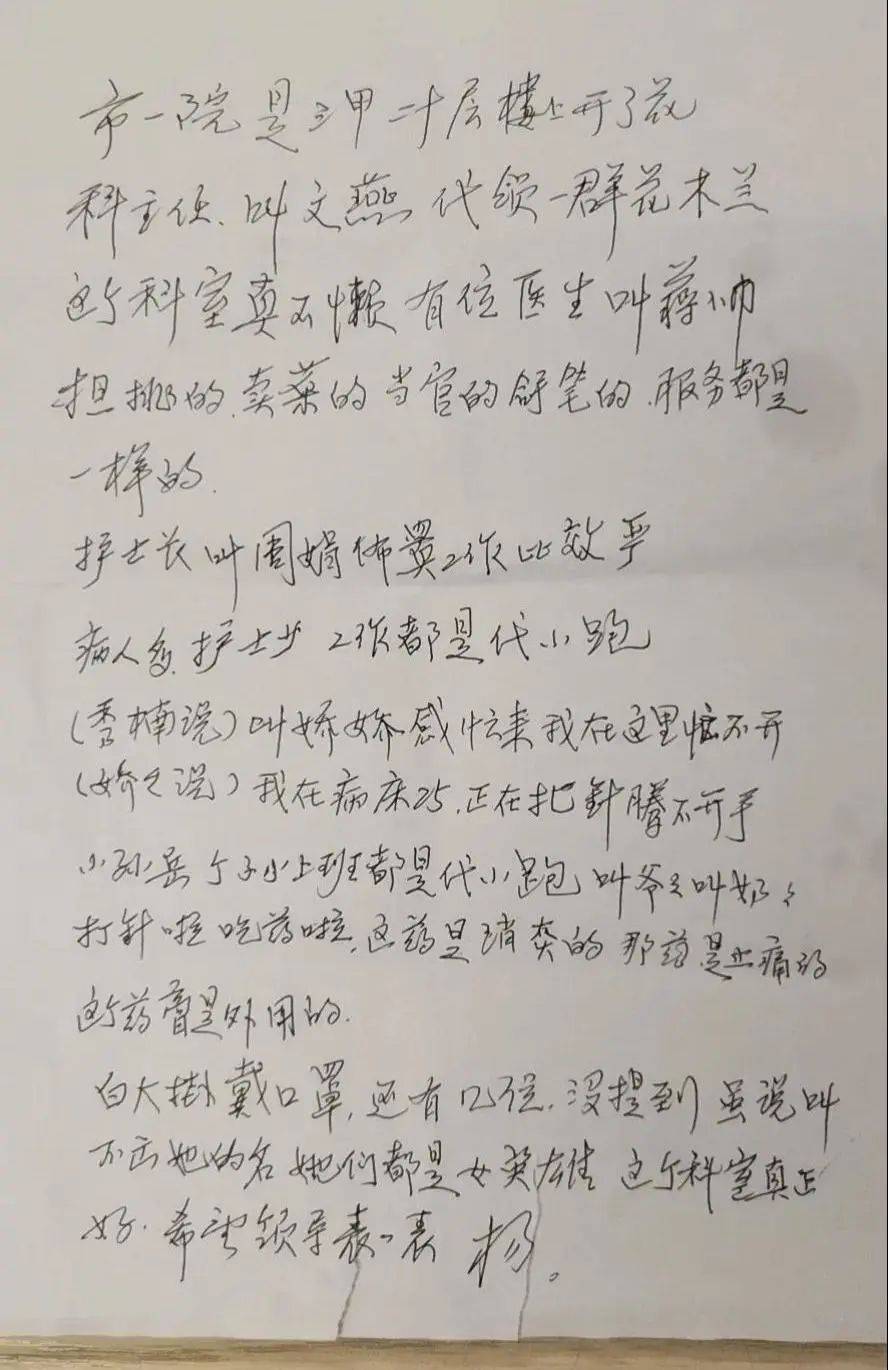 市一院是三甲 二十层楼上开了花
科主任.叫文燕 代领一群花木兰
这个科室真不懒 有位医生叫蒋帅
担挑的.卖菜的 当官的 拿笔的.服务都是
一样的.
护士长叫周娟 佈置工作比较严
病人多.护士少 工作都是代小跑
(秀楠说)叫娇娇感忙来 我在这里忙不开
(娇々说)我在病床25.正在扎针腾不开手
小孙岳 个子小上班都是代小跑 叫爷々叫奶々
打针啦 吃药啦.这药是消炎的 那药是止痛的
这个药膏是外用的.
白大掛戴口罩,还有几位.没提到 虽说叫
不出她的名 她们都是女英雄 这个科室真正
好.希望领导表一表 杨。